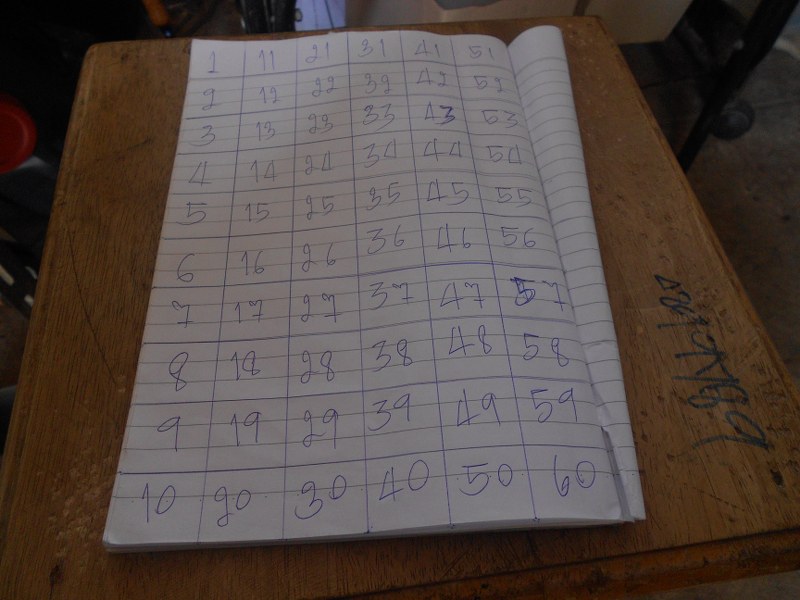 1 11 21 31 41 51
2 12 22 32 42 52
3 13 23 33 43 53
4 14 24 34 44 54
5 15 25 35 45 55
6 16 26 36 46 56
7 17 27 37 47 57
8 18 28 38 48 58
9 19 29 39 49 59
10 20 30 40 50 60